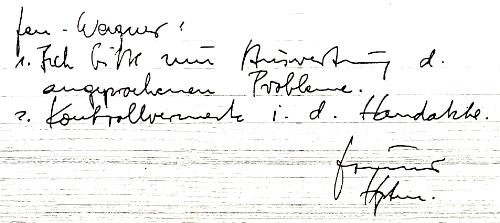 Gen. Wagner!
1. Ich bitte um Auswertung d.
angesprochenen Probleme.
2. Kontrollvermerk i. d. Handakte.
Hptm.